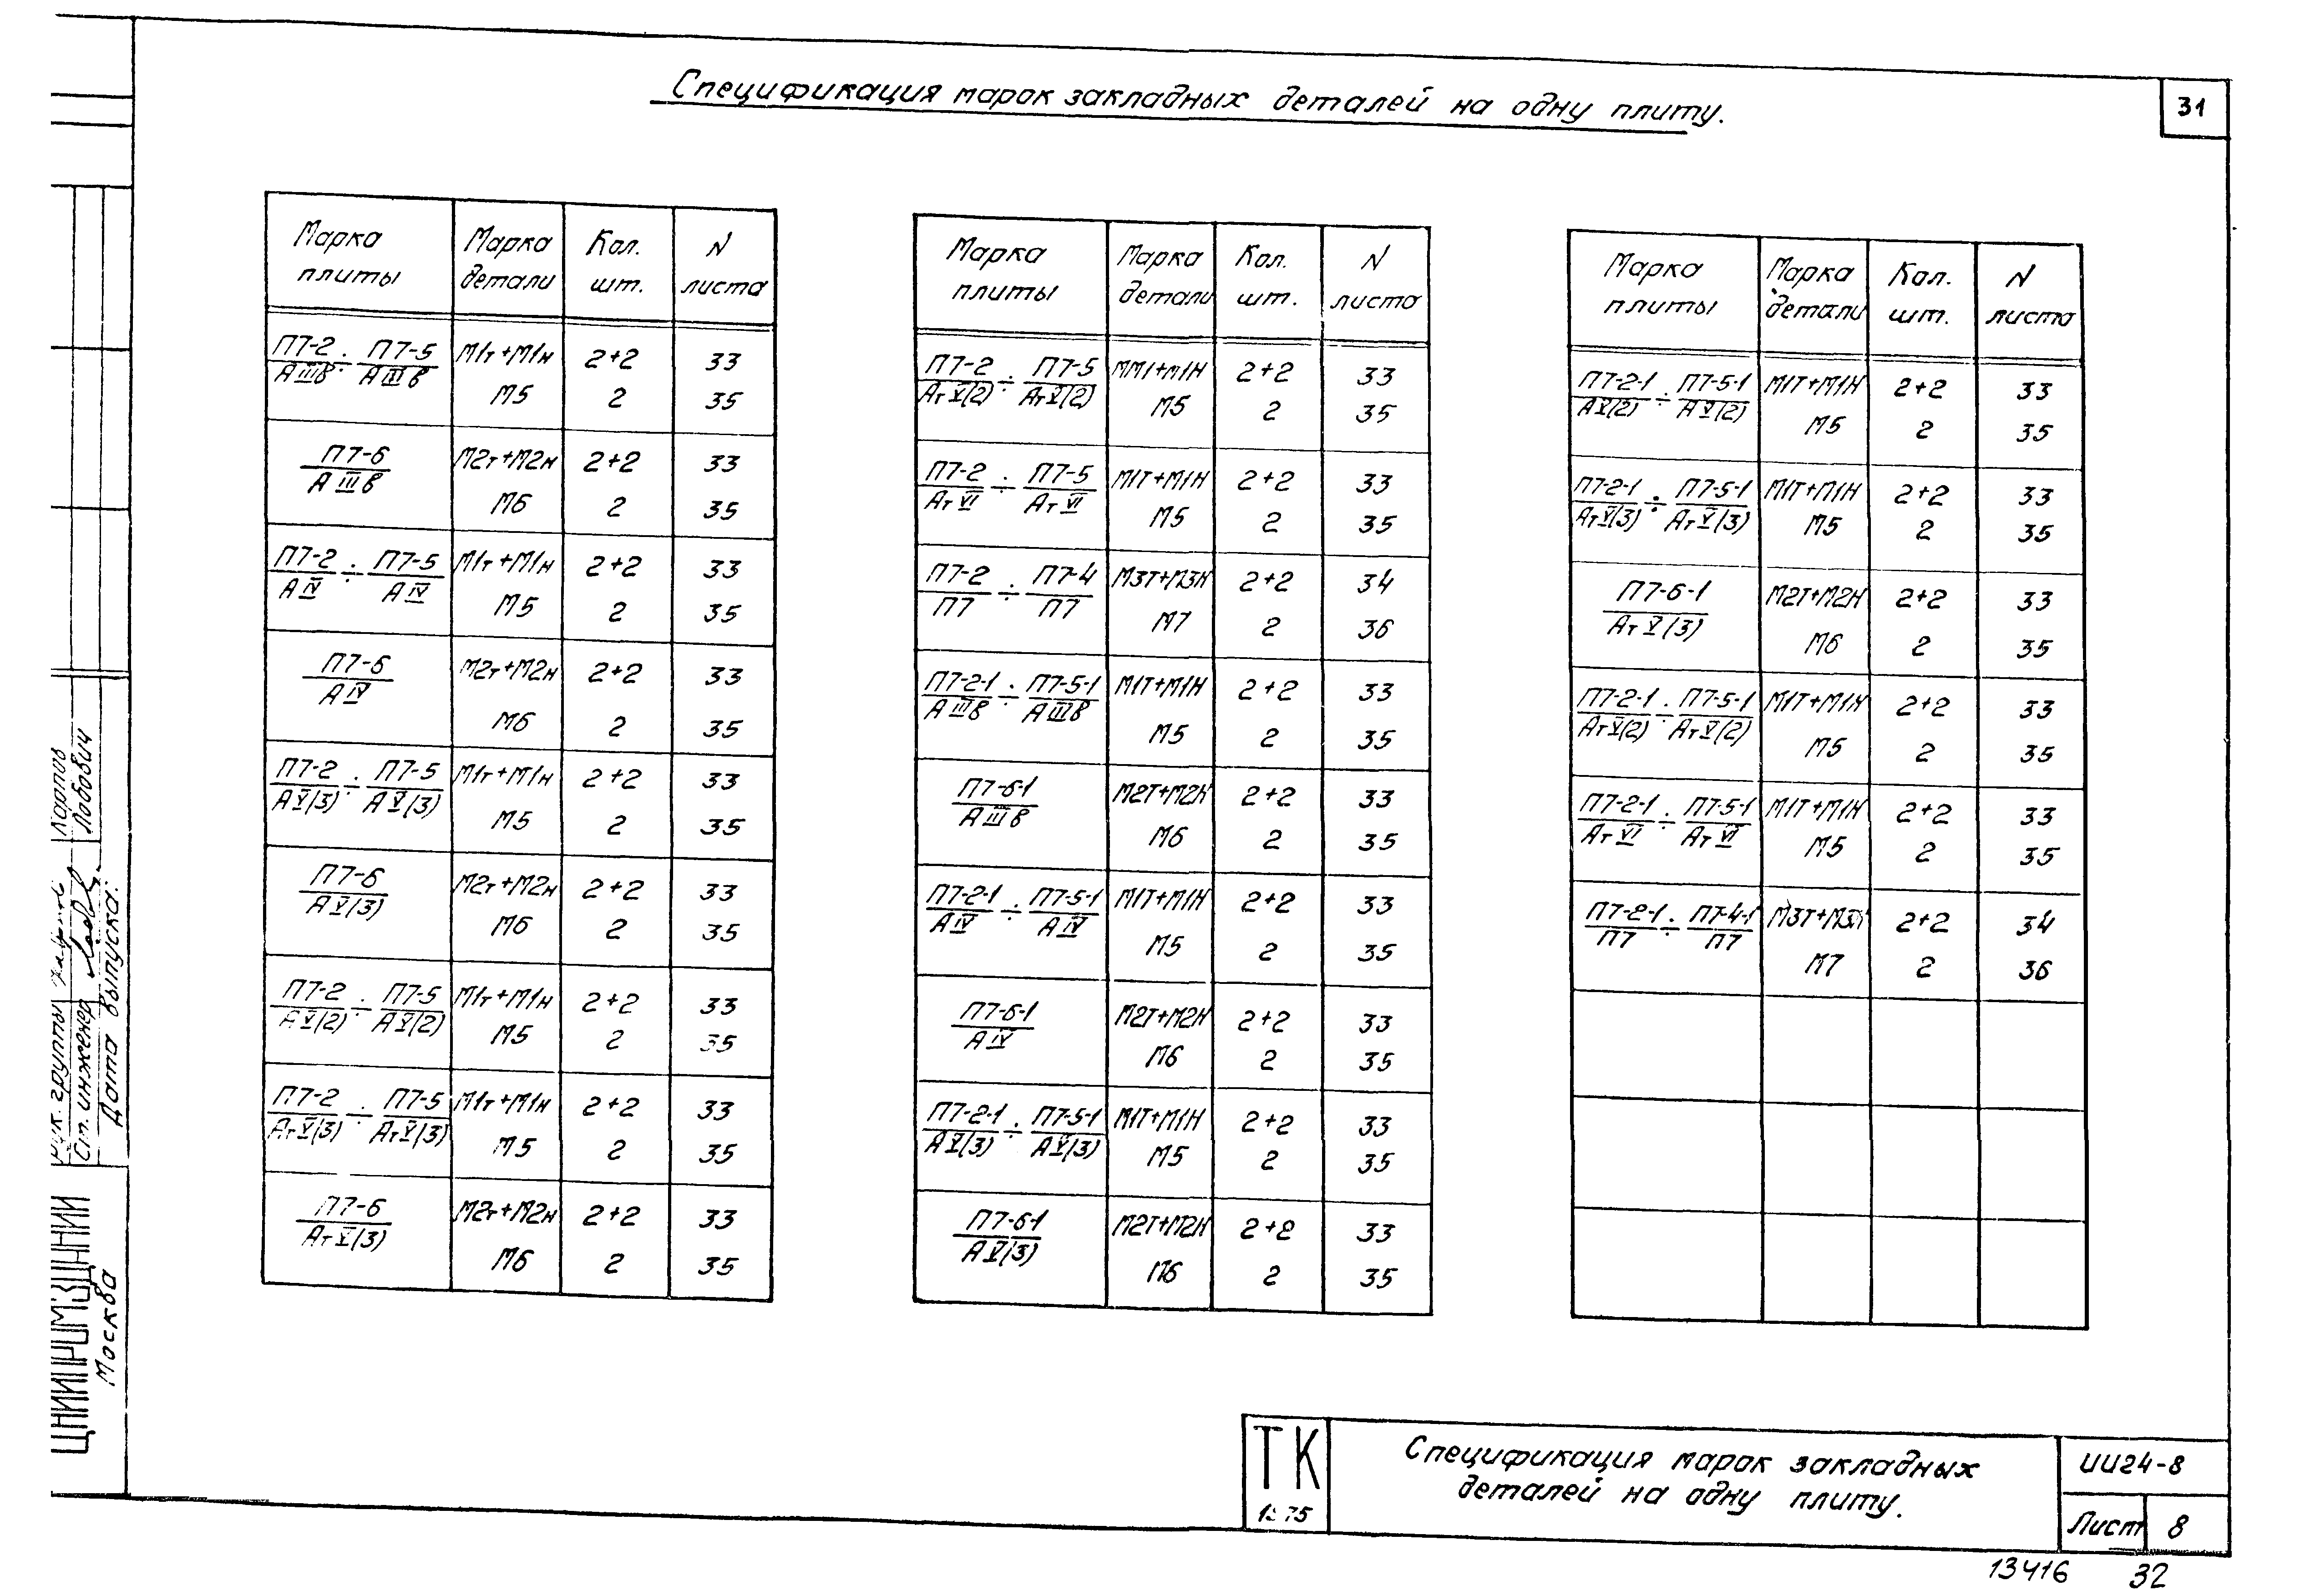 Спецификация марок закладных деталей на одну плиту.
31
Марка плиты | Марка детали | Кол. шт. | N листа
П7-2/АIIIв ÷ П7-5/АIIIв | М1т+М1н | 2+2 | 33
М5 | 2 | 35
П7-6/АIIIв | М2т+М2н | 2+2 | 33
М6 | 2 | 35
П7-2/АIV ÷ П7-5/АIV | М1т+М1н | 2+2 | 33
М5 | 2 | 35
П7-6/АIV | М2т+М2н | 2+2 | 33
М6 | 2 | 35
П7-2/АV(3) ÷ П7-5/АV(3) | М1т+М1н | 2+2 | 33
М5 | 2 | 35
П7-6/АV(3) | М2т+М2н | 2+2 | 33
М6 | 2 | 35
П7-2/АV(2) ÷ П7-5/АV(2) | М1т+М1н | 2+2 | 33
М5 | 2 | 35
П7-2/АтV(3) ÷ П7-5/АтV(3) | М1т+М1н | 2+2 | 33
М5 | 2 | 35
П7-6/АтV(3) | М2т+М2н | 2+2 | 33
М6 | 2 | 35
Марка плиты | Марка детали | Кол. шт. | N листа
П7-2/АтV(2) ÷ П7-5/АтV(2) | ММ1+М1Н | 2+2 | 33
М5 | 2 | 35
П7-2/АтVI ÷ П7-5/АтVI | М1Т+М1Н | 2+2 | 33
М5 | 2 | 35
П7-2/П7 ÷ П7-4/П7 | М3Т+М3Н | 2+2 | 34
М7 | 2 | 36
П7-2-1/АIIIв ÷ П7-5-1/АIIIв | М1Т+М1Н | 2+2 | 33
М5 | 2 | 35
П7-6-1/АIIIв | М2Т+М2Н | 2+2 | 33
М6 | 2 | 35
П7-2-1/АIV ÷ П7-5-1/АIV | М1Т+М1Н | 2+2 | 33
М5 | 2 | 35
П7-6-1/АIV | М2Т+М2Н | 2+2 | 33
М6 | 2 | 35
П7-2-1/АV(3) ÷ П7-5-1/АV(3) | М1Т+М1Н | 2+2 | 33
М5 | 2 | 35
П7-6-1/АV(3) | М2Т+М2Н | 2+2 | 33
М6 | 2 | 35
Марка плиты | Марка детали | Кол. шт. | N листа
П7-2-1/АV(2) ÷ П7-5-1/АV(2) | М1Т+М1Н | 2+2 | 33
М5 | 2 | 35
П7-2-1/АтV(3) ÷ П7-5-1/АтV(3) | М1Т+М1Н | 2+2 | 33
М5 | 2 | 35
П7-6-1/АтV(3) | М2Т+М2Н | 2+2 | 33
М6 | 2 | 35
П7-2-1/АтV(2) ÷ П7-5-1/АтV(2) | М1Т+М1Н | 2+2 | 33
М5 | 2 | 35
П7-2-1/АтVI ÷ П7-5-1/АтVI | М1Т+М1Н | 2+2 | 33
М5 | 2 | 35
П7-2-1/П7 ÷ П7-4-1/П7 | М3Т+М3Н | 2+2 | 34
М7 | 2 | 36
Рук. группы Карпов
Ст. инженер Лобович
Дата выпуска:
ЦНИИПРОМЗДАНИЙ
Москва
ТК
1975
Спецификация марок закладных
деталей на одну плиту.
ИИ24-8
Лист 8
13416 32